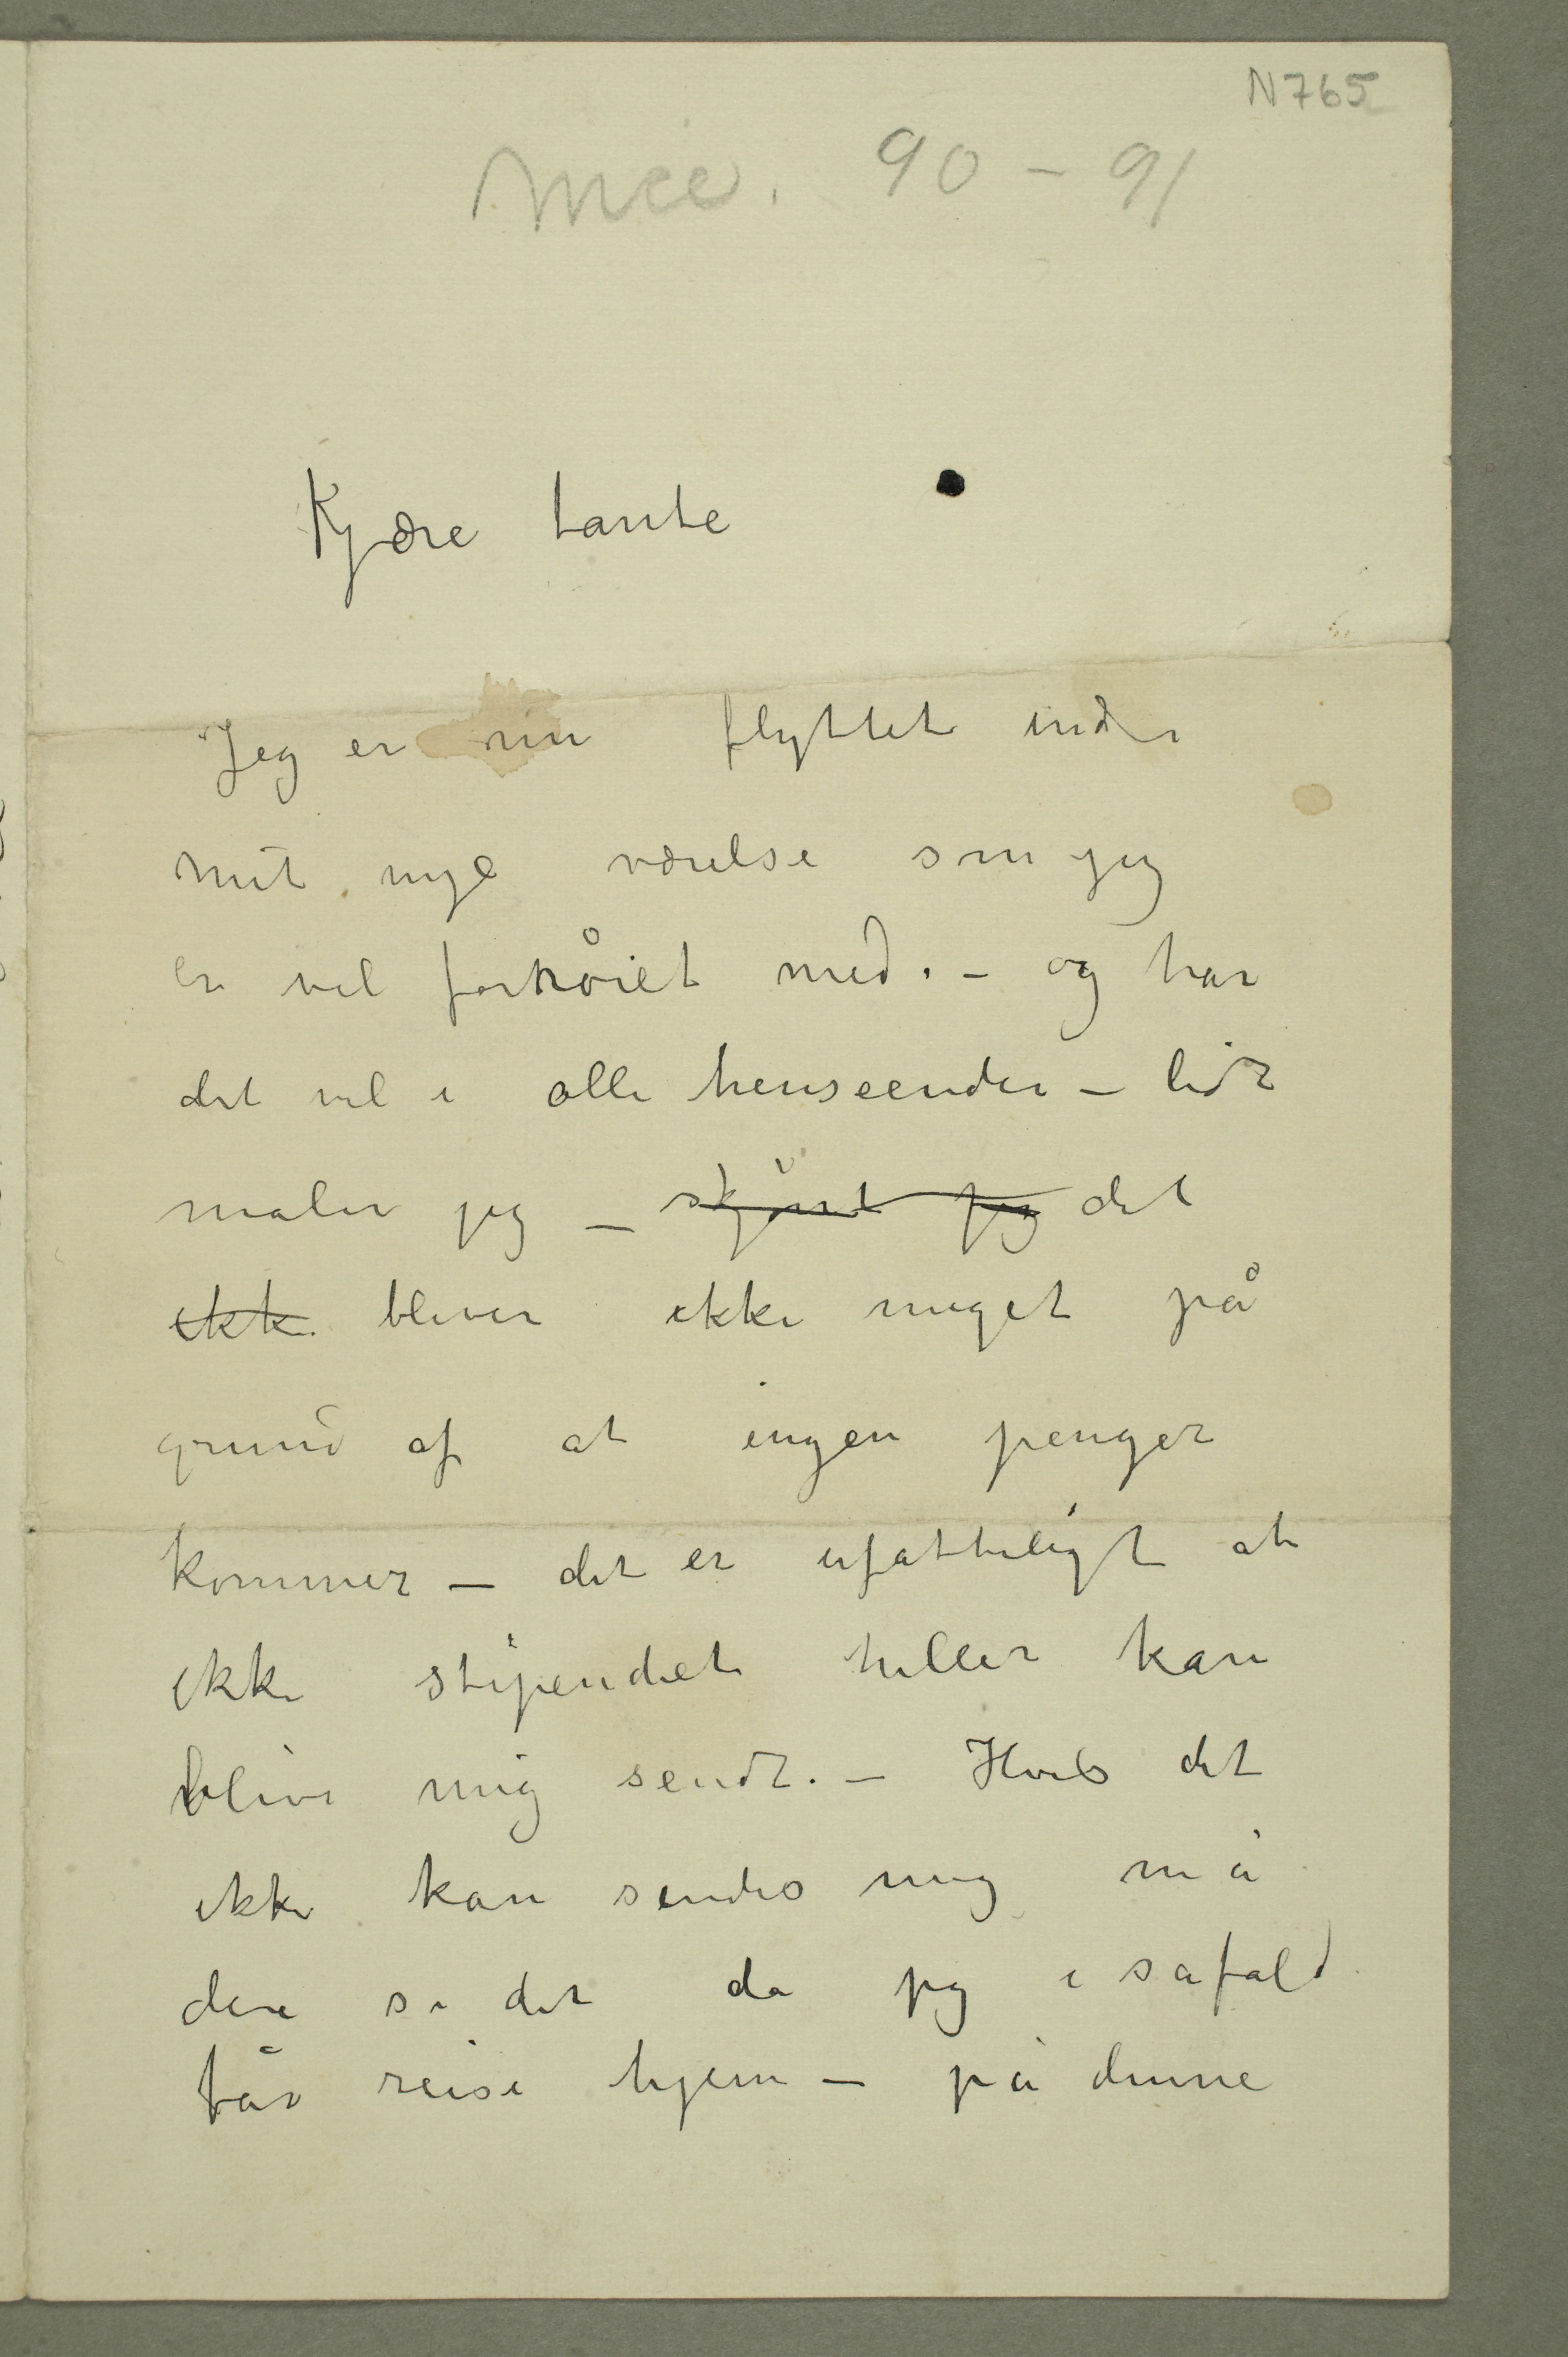 N765
Nice. 90 – 91
Kjære tante
Jeg er nu flyttet ind i
mit nye værelse som jeg
er vel fornöiet med. – og har
det vel i alle henseender – lidt
maler jeg – skjönt jeg det
ikk bliver ikke meget på
grund af at ingen penger
kommer – det er ufatteligt at
ikke stipendiet heller kan
blive mig sendt. – Hvis det
ikke kan sendes mig må
dere si det da jeg i såfald
får reise hjem – på denne